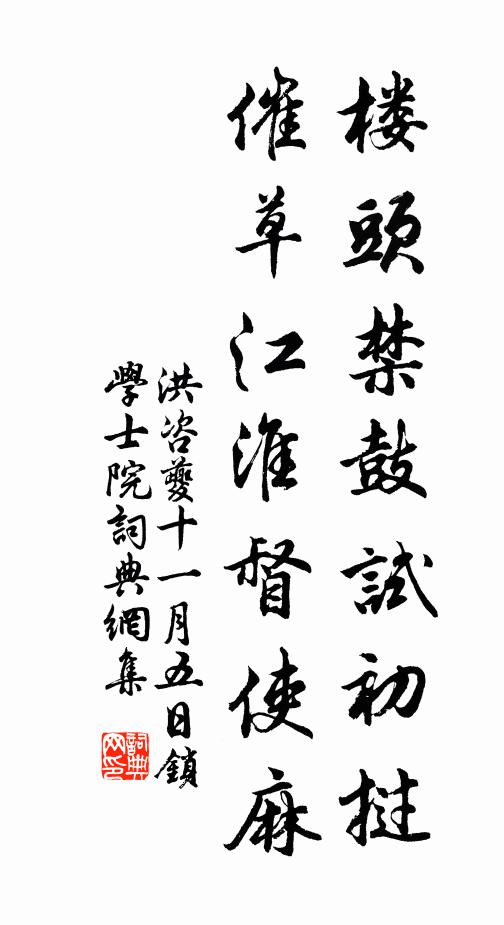 楼頭禁鼓試初撻
催草江淮督使麻
洪咨夔十一月五日鎖
學士院詞典網集
詞典
网印